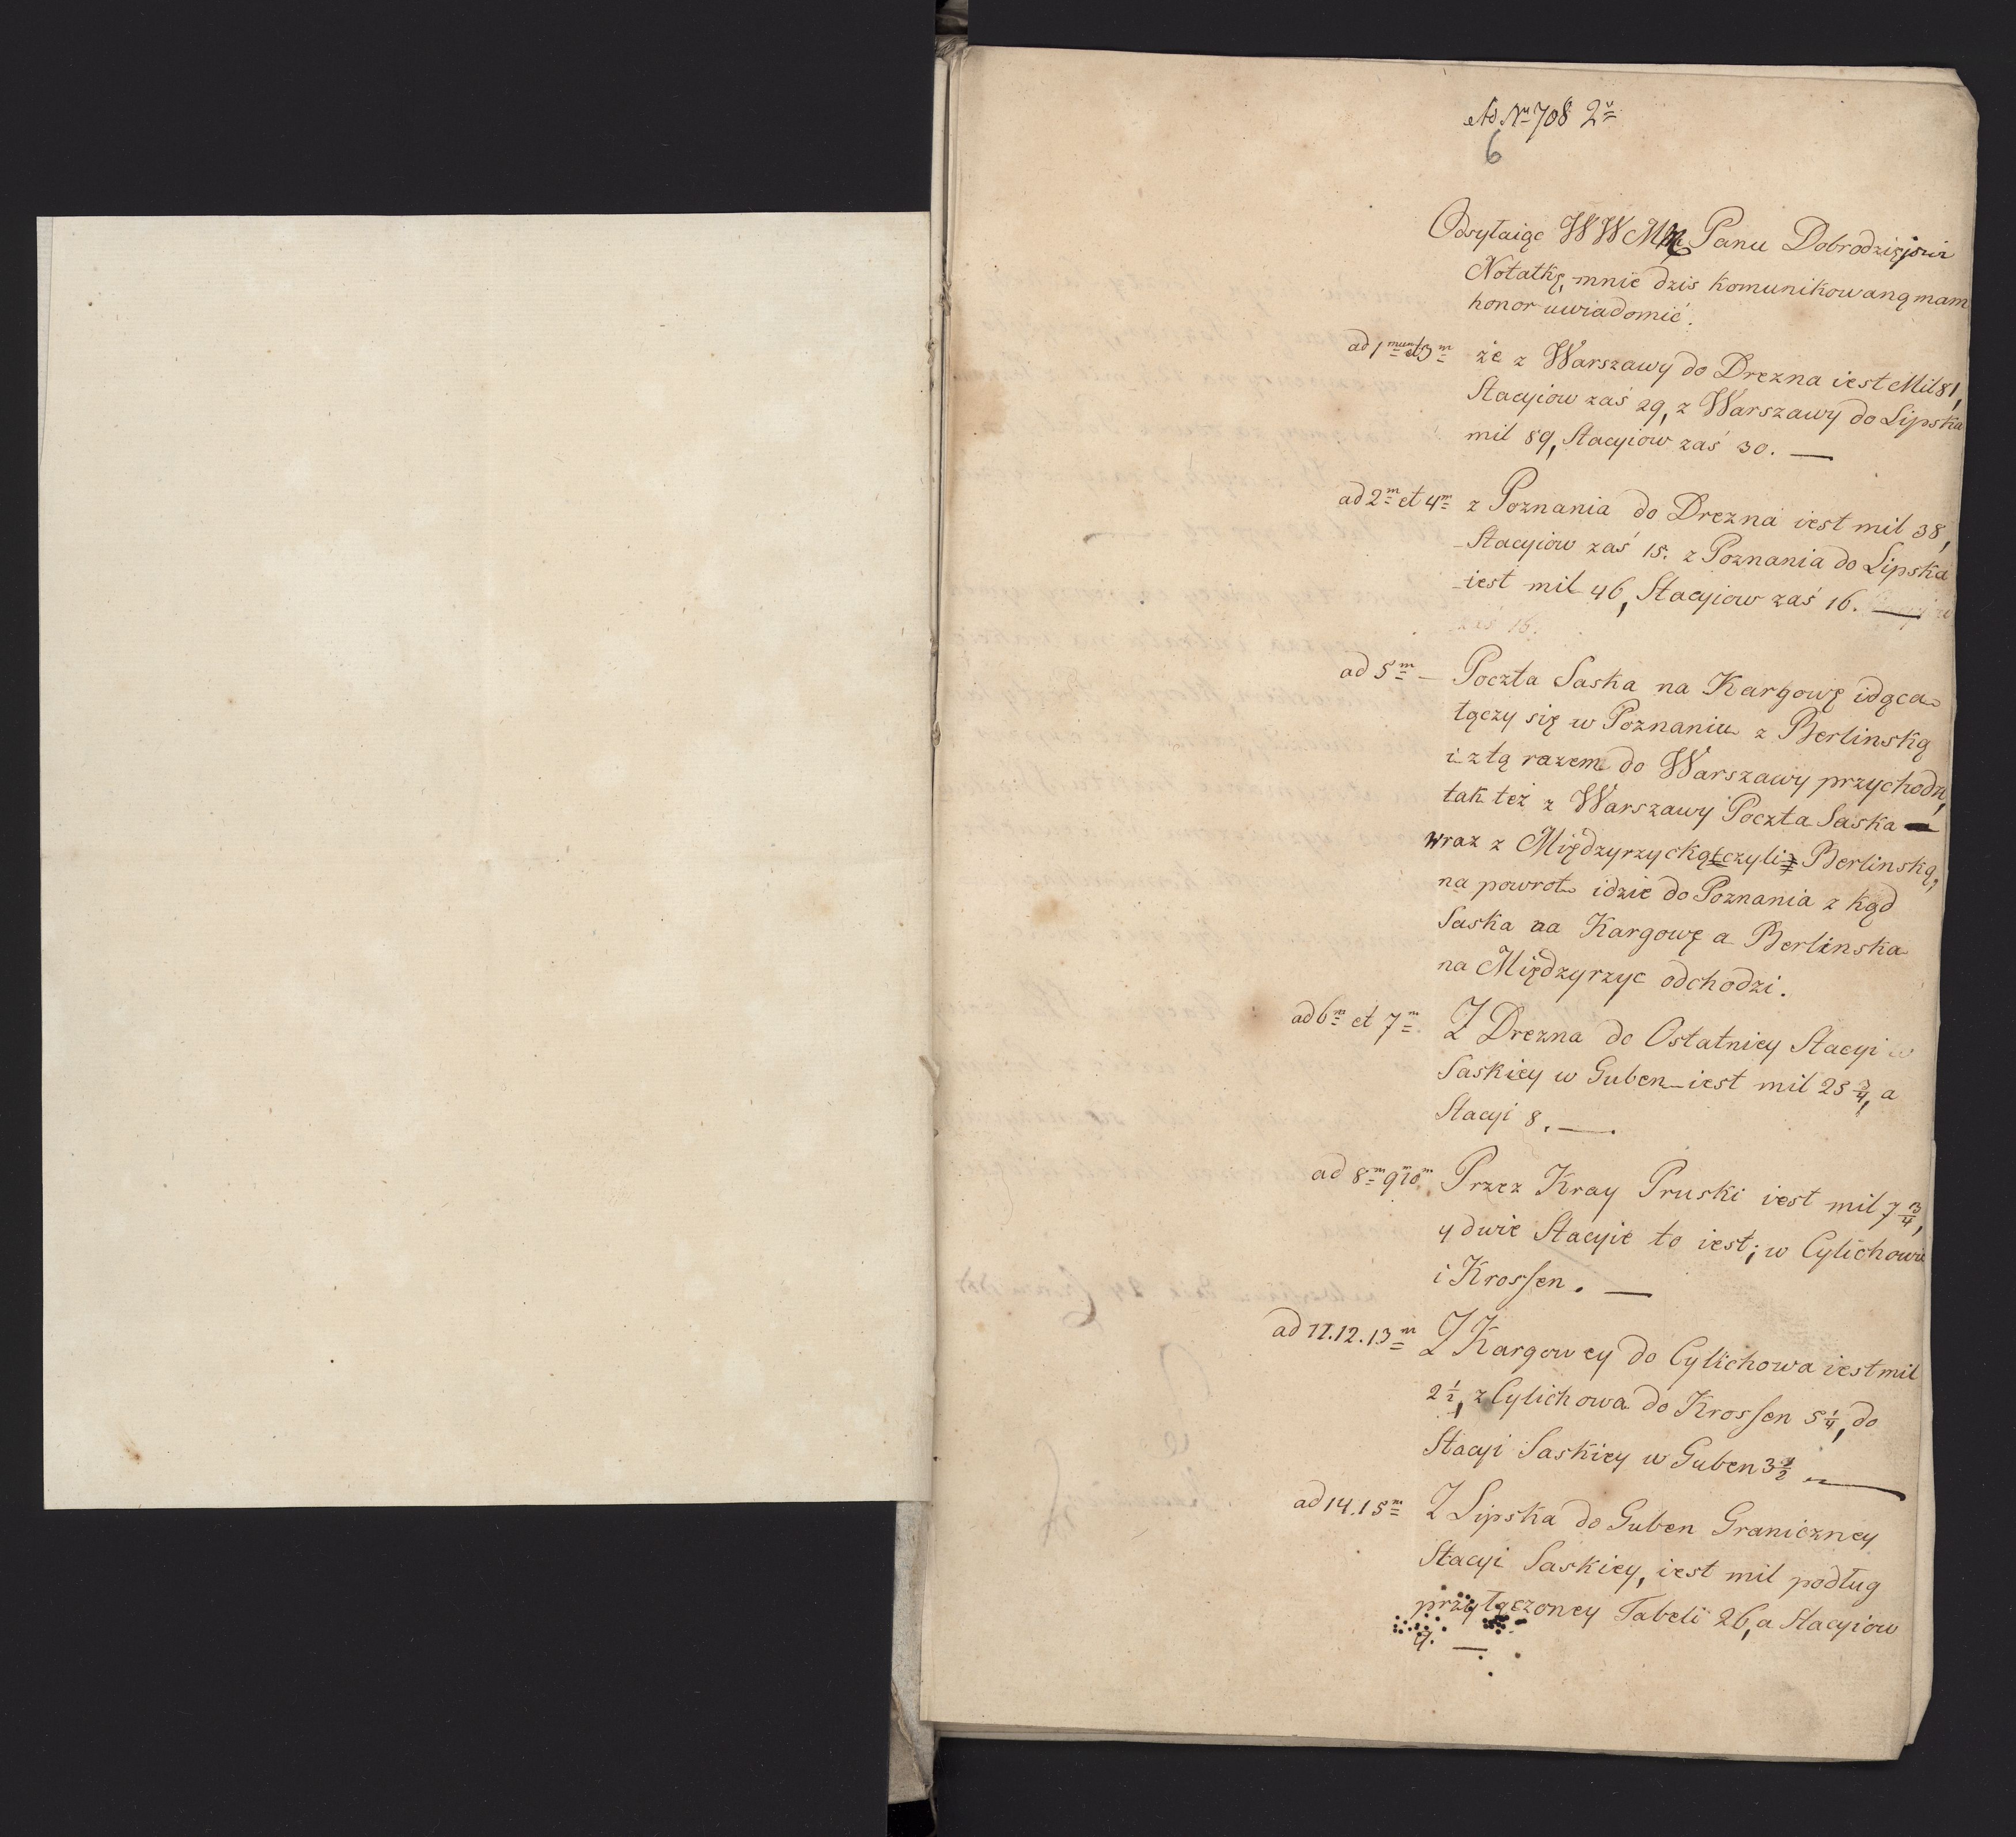 Ad Nr 708 2
6
Odsyłaiąc WWMM Panu Dobrodzieiowi
Notatkę, mnie dzis komunikowaną mam
honor uwiadomić.
ad 1mum et 3m że z Warszawy do Drezna iest Mil 81,
Stacyiow zaś 29, z Warszawy do Lipska
mil 89, Stacyiow zaś 30. —
ad 2m et 4m z Poznania do Drezna iest mil 38,
Stacyiow zaś 15. z Poznania do Lipska
iest mil 46, Stacyiow zaś 16. —
zaś 16.
ad 5m — Poczta Saska na Kargowę idąca
łączy się w Poznaniu z Berlinską
i z tą razem do Warszawy przychodzi,
tak też z Warszawy Poczta Saska
wraz z Międzyrzycką czyli Berlinską,
na powrot idzie do Poznania z kąd
Saska na Kargowę a Berlinska
na Międzyrzyc odchodzi.
ad 6m et 7m Z Drezna do Ostatniey Stacyi
Saskiey w Guben iest mil 25 3/4, a
Stacyi 8. —
ad 8m 9m 10m Przez Kray Pruski iest mil 7 3/4,
y dwie Stacyie to iest; w Cylichowie
i Krossen. —
ad 11.12.13m Z Kargowey do Cylichowa iest mil
2 1/2, z Cylichowa do Krossen 5 1/4, do
Stacyi Saskiey w Guben 3 1/2 —
ad 14.15m Z Lipska do Guben Graniczney
Stacyi Saskiey, iest mil podług
przyłączoney Tabeli 26, a Stacyiow